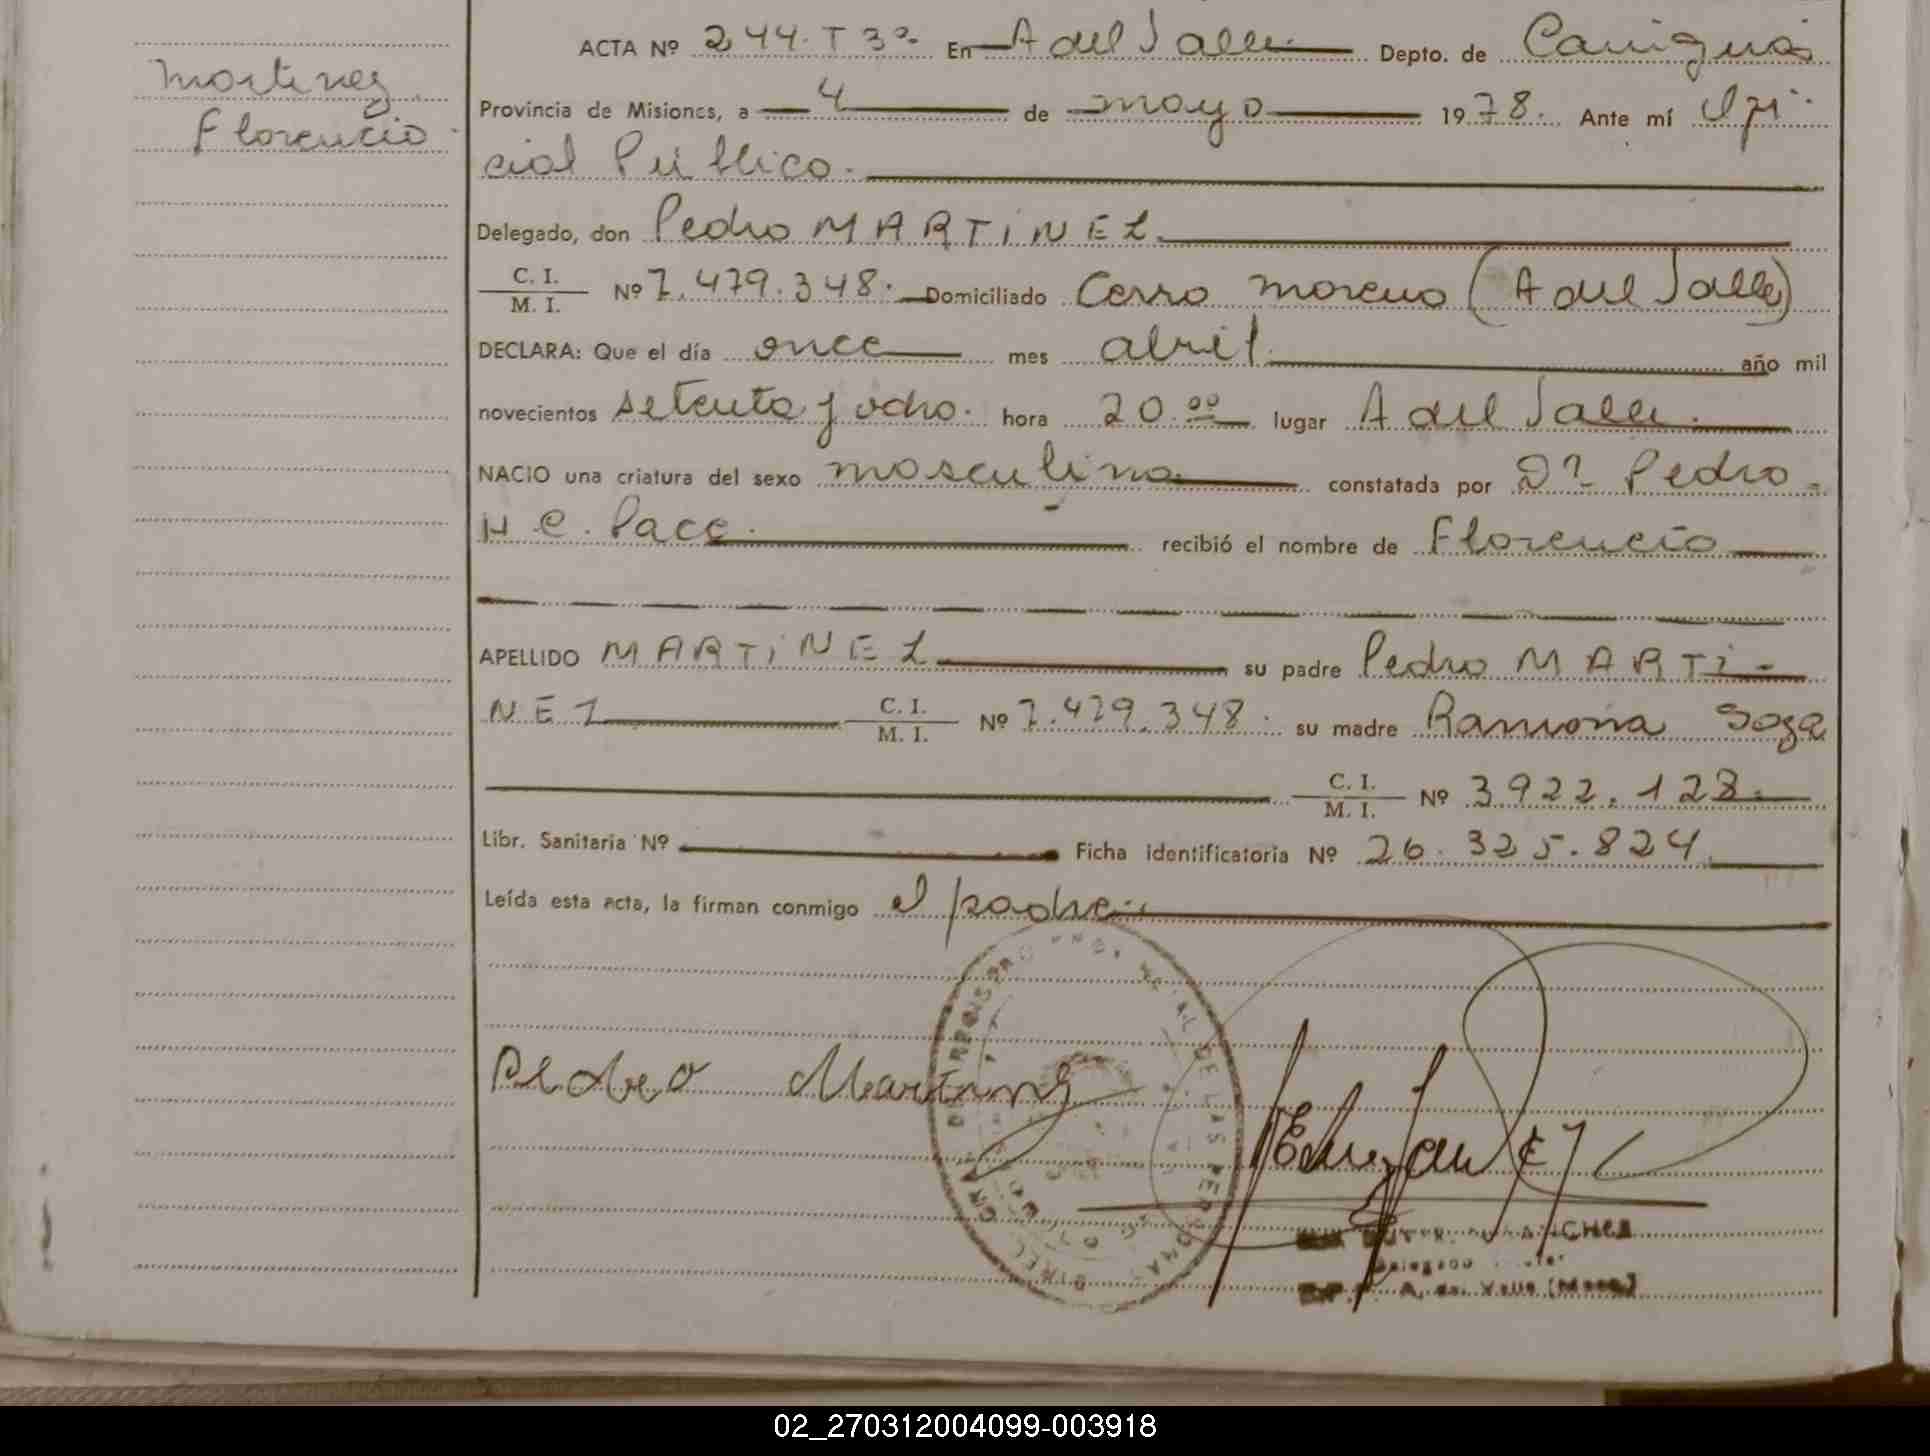 Martinez
Florencio
ACTA Nº 244. T 3º En A del Valle. Depto. de Cainguás
Provincia de Misiones, a 4 de mayo 1978. Ante mí Ofi-
cial Público.
Delegado, don Pedro MARTINEZ
C. I.
M. I. Nº 7.479.348. Domiciliado Cerro Moreno (A del Valle)
DECLARA: Que el día once mes abril año mil
novecientos setenta y ocho. hora 20.00 lugar A del Valle.
NACIO una criatura del sexo masculino constatada por Dr. Pedro
H C. Pace. recibió el nombre de Florencio
APELLIDO MARTINEZ su padre Pedro MARTI-
NEZ C. I.
M. I. Nº 7.479.348. su madre Ramona Soza
C. I.
M. I. Nº 3922.128.
Libr. Sanitaria Nº Ficha identificatoria Nº 26.325.824
Leída esta acta, la firman conmigo el padre
Pedro Martinez
DE LAS PERSONAS
Delegado
A. del Valle (Mnes.)
02_270312004099-003918